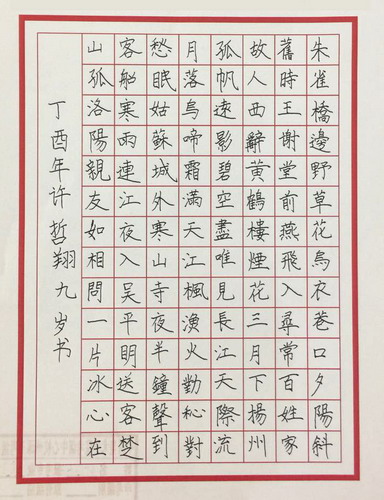 朱雀橋邊野草花烏衣巷口夕陽斜
舊時王謝堂前燕飛入尋常百姓家
故人西辭黃鶴樓煙花三月下揚州
孤帆遠影碧空盡唯見長江天際流
月落烏啼霜滿天江楓漁火勤沁對
愁眠姑蘇城外寒山寺夜半鐘聲到
客船寒雨連江夜入吳平明送客楚
山孤洛陽親友如相問一片冰心在
丁酉年许哲翔九岁书